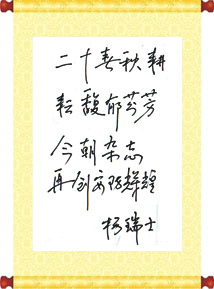 二十春秋耕
耘馥郁芬芳
今朝杂志
再创安防辉煌
杨瑞士